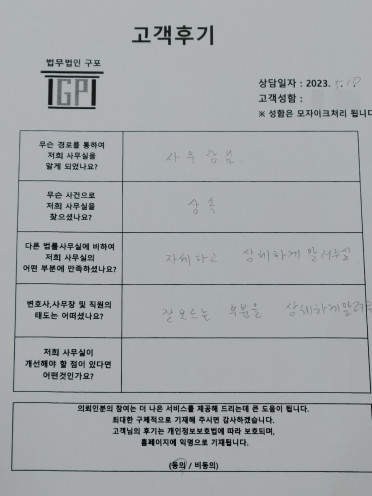 고객후기
법무법인 구포
GP
상담일자 : 2023. 5.18
고객성함 :
※ 성함은 모자이크처리 됩니다
무슨 경로를 통하여
저희 사무실을
알게 되었나요?
사무장님
무슨 사건으로
저희 사무실을
찾으셨나요?
상속
다른 법률사무실에 비하여
저희 사무실의
어떤 부분에 만족하셨나요?
자세하고 상세하게 알려주심
변호사,사무장 및 직원의
태도는 어떠셨나요?
잘모르는 부분을 상세하게알려
저희 사무실이
개선해야 할 점이 있다면
어떤것인가요?
의뢰인분의 참여는 더 나은 서비스를 제공해 드리는데 큰 도움이 됩니다.
최대한 구체적으로 기재해 주시면 감사하겠습니다.
고객님의 후기는 개인정보보호법에 따라 보호되며,
홈페이지에 익명으로 기재됩니다.
(동의 / 비동의)